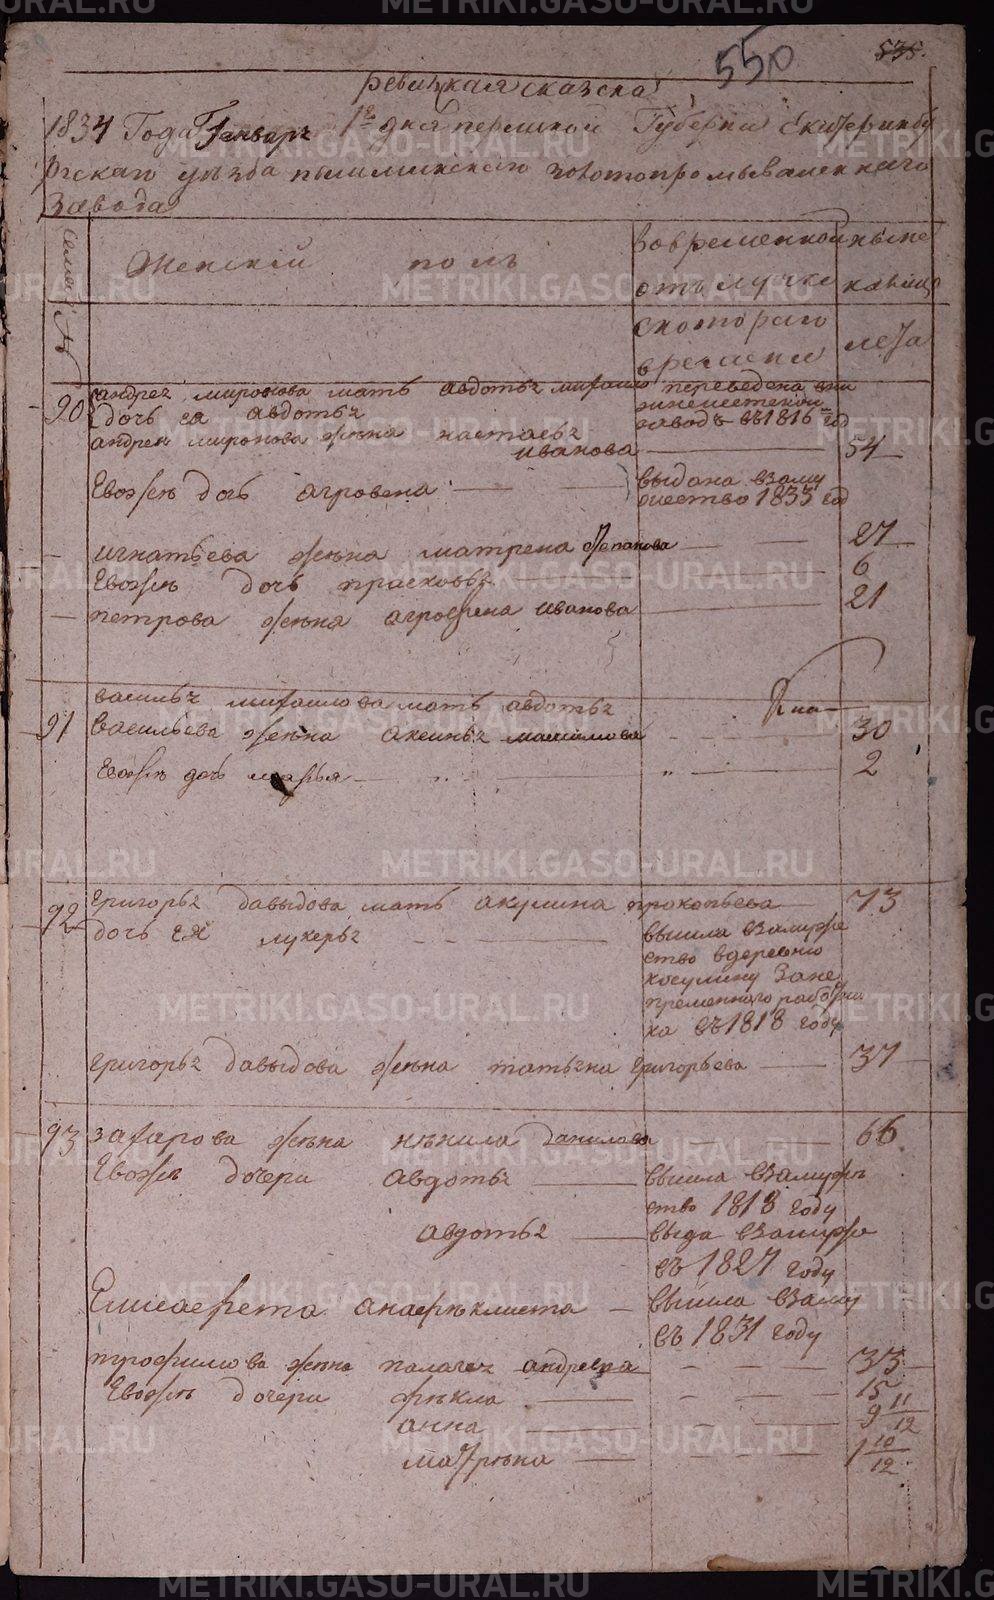 550 535.
ревизкая сказска
1834 Года Генваря 1го дня пермской Губерни Екатеринбу
ргскаго уезда пышминскаго золотопромываленнаго
завода
семьи №
Женскій полъ
вовременной
отълучке
ныне
налицо
скотораго
времени
лета
90
андрея миронова мать авдотья
дочь ея авдотья
переведена
заводъ въ 1816 год
андрея миронова жена настасья
иванова 54
Евожъ дочь агровена
выдана взаму
жество 1833 год
игнатьева жена матрена степанова 27
Евожъ дочь прасковья 6
петрова жена агрофена иванова 21
91
василья михаилова мать авдотья
васильева жена аксинья максимова 30
Евожъ дочь марья 2
92
григорья давыдова мать акулина прокопьева 73
дочь ея лукерья
вышла взамуже
ство вдеревню
косулину зане
пременного работни
ка въ 1818 году
григорья давыдова жена татьяна григорьева 37
93
захарова жена ненила данилова 66
Евожъ дочери авдотья
вышла взамужъ
ство 1818 году
авдотья
выда взамуже
въ 1827 году
Елисаерета анаеръклиста
вышла взаму
въ 1831 году
трофимова жена палагея андреева 35
Евожъ дочери фекла 15
анна 9 11/12
матрена 1 10/12
METRIKI.GASO-URAL.RU